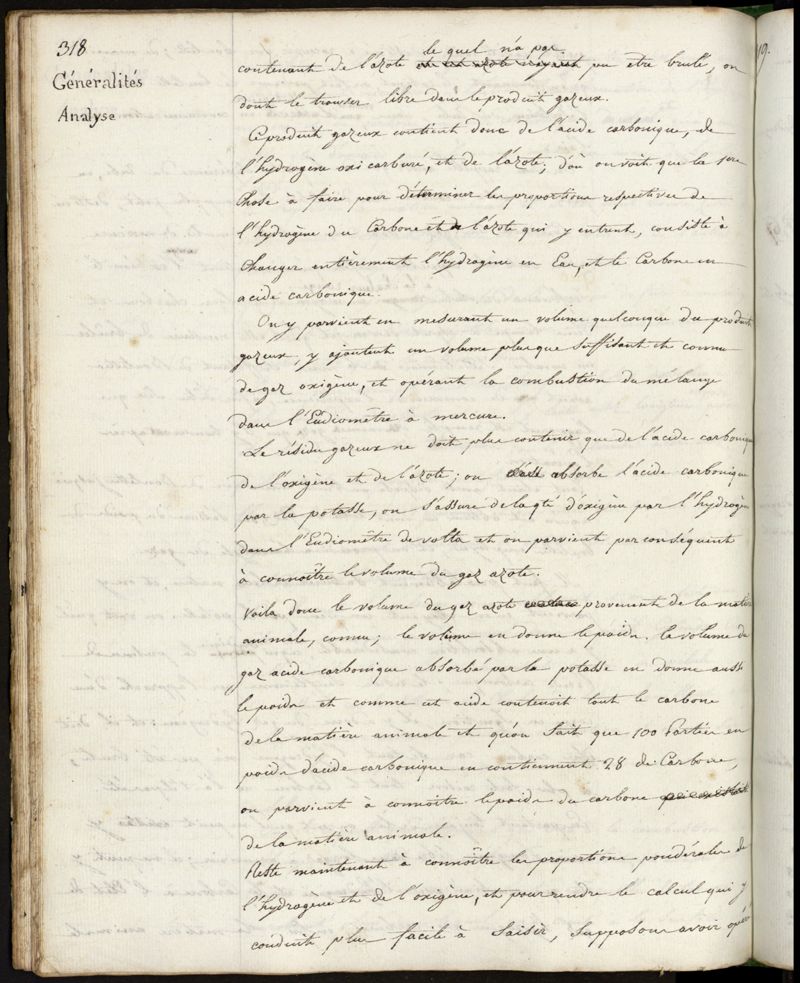 318
Généralités
Analyse
le quel n'a pas
contenant de l'azote pu etre brulé, on
doit le trouver libre dans le produit gazeux.
Ce produit gazeux contient donc de l'acide carbonique, de
l'hydrogène oxi carburé, et de l'azote; d'où on voit que la 1ere
chose à faire pour déterminer les proportions respectives de
l'hydrogène du Carbone et de l'azote qui y entrent, consiste à
changer entièrement l'hydrogène en Eau, et le Carbone en
acide carbonique.
On y parvient en mesurant un volume quelconque du produit
gazeux, y ajoutant un volume plus que suffisant et connu
de gaz oxigène, et opérant la combustion du mélange
dans l'Eudiomètre à mercure.
Le résidu gazeux ne doit plus contenir que de l'acide carbonique
de l'oxigène et de l'azote; on absorbe l'acide carbonique
par la potasse, on s'assure de la qté d'oxigène par l'hydrogène
dans l'Eudiomètre de volta et on parvient par conséquent
à connoître le volume du gaz azote.
Voila donc le volume du gaz azote provenant de la matière
animale, connu; le volume en donne le poids. le volume du
gaz acide carbonique absorbé par la potasse en donne aussi
le poids et comme cet acide contenoit tout le carbone
de la matière animale et qu'on sait que 100 Parties en
poids d'acide carbonique en contiennent 28 de Carbone,
on parvient à connoitre le poids du carbone
de la matière animale.
Reste maintenant à connoître les proportions pondérales de
l'hydrogène et de l'oxigène, et pour rendre le calcul qui y
conduit plus facile à saisir, supposons avoir opéré
19.